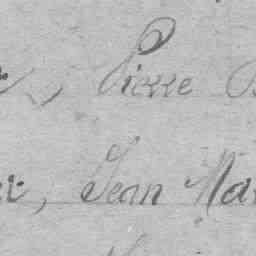 , Pierre
, Jean Ma